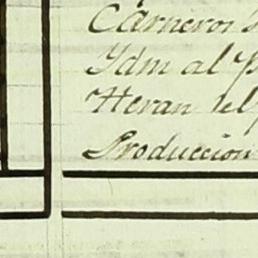 Carneros
Ydm al P
Heran del
Produccion